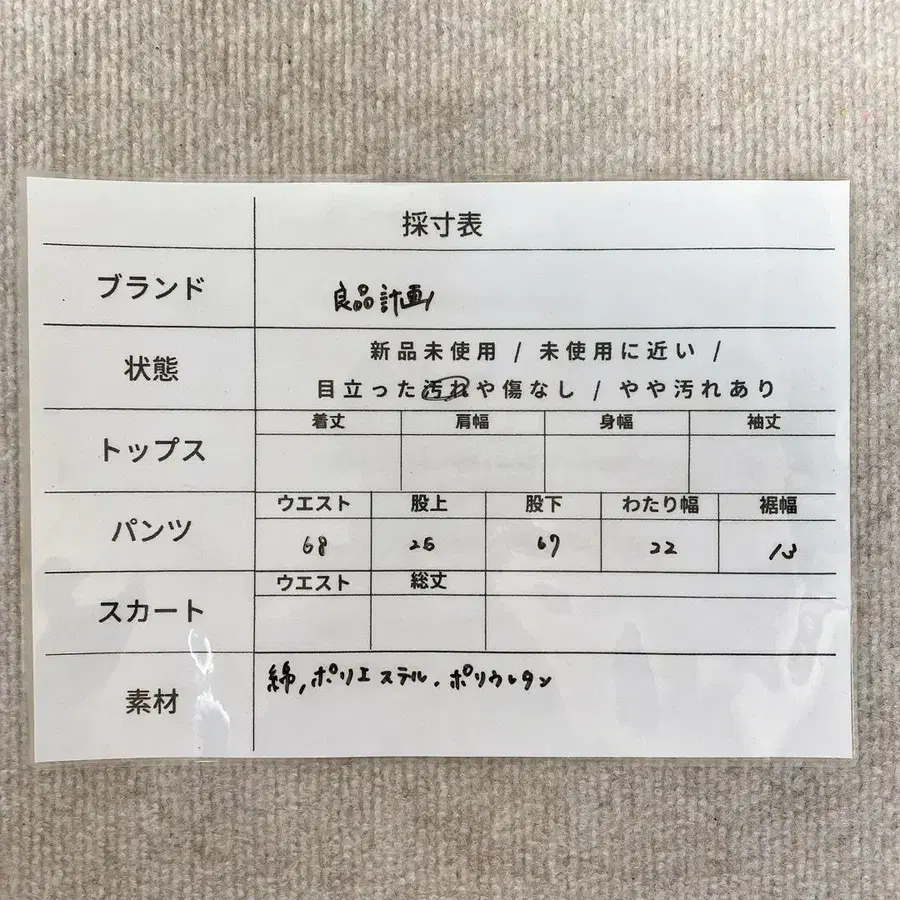 採寸表
ブランド 良品計画
状態 新品未使用 / 未使用に近い /
目立った汚れや傷なし / やや汚れあり
トップス 着丈 肩幅 身幅 袖丈
パンツ ウエスト 股上 股下 わたり幅 裾幅
68 25 67 22 13
スカート ウエスト 総丈
素材 綿,ポリエステル.ポリウレタン